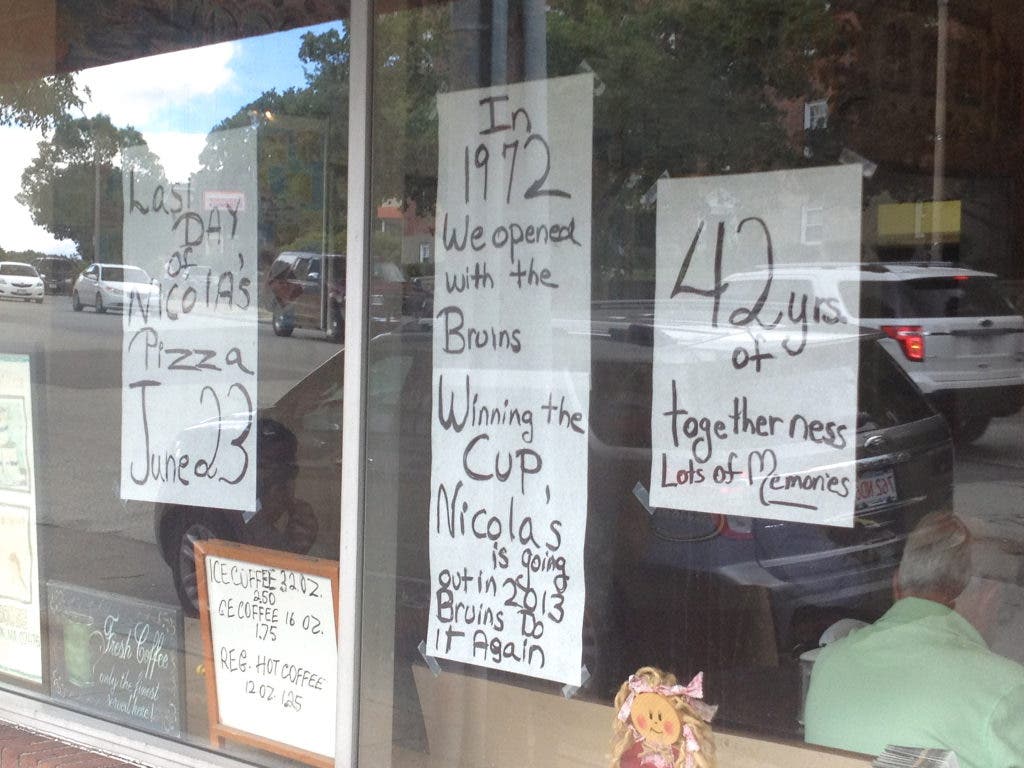 Last
DAY
of
NICOLA'S
Pizza
June 23
In
1972
We opened
with the
Bruins
Winning the
CUP
Nicola's
is going
out in 2013
Bruins Do
it Again
42 yrs.
of
togetherness
Lots of Memories
ICE COFFEE 32 OZ.
250
ICE COFFEE 16 OZ.
1.75
REG. HOT COFFEE
12 OZ. 1.25
Fresh Coffee
only the finest
served here!